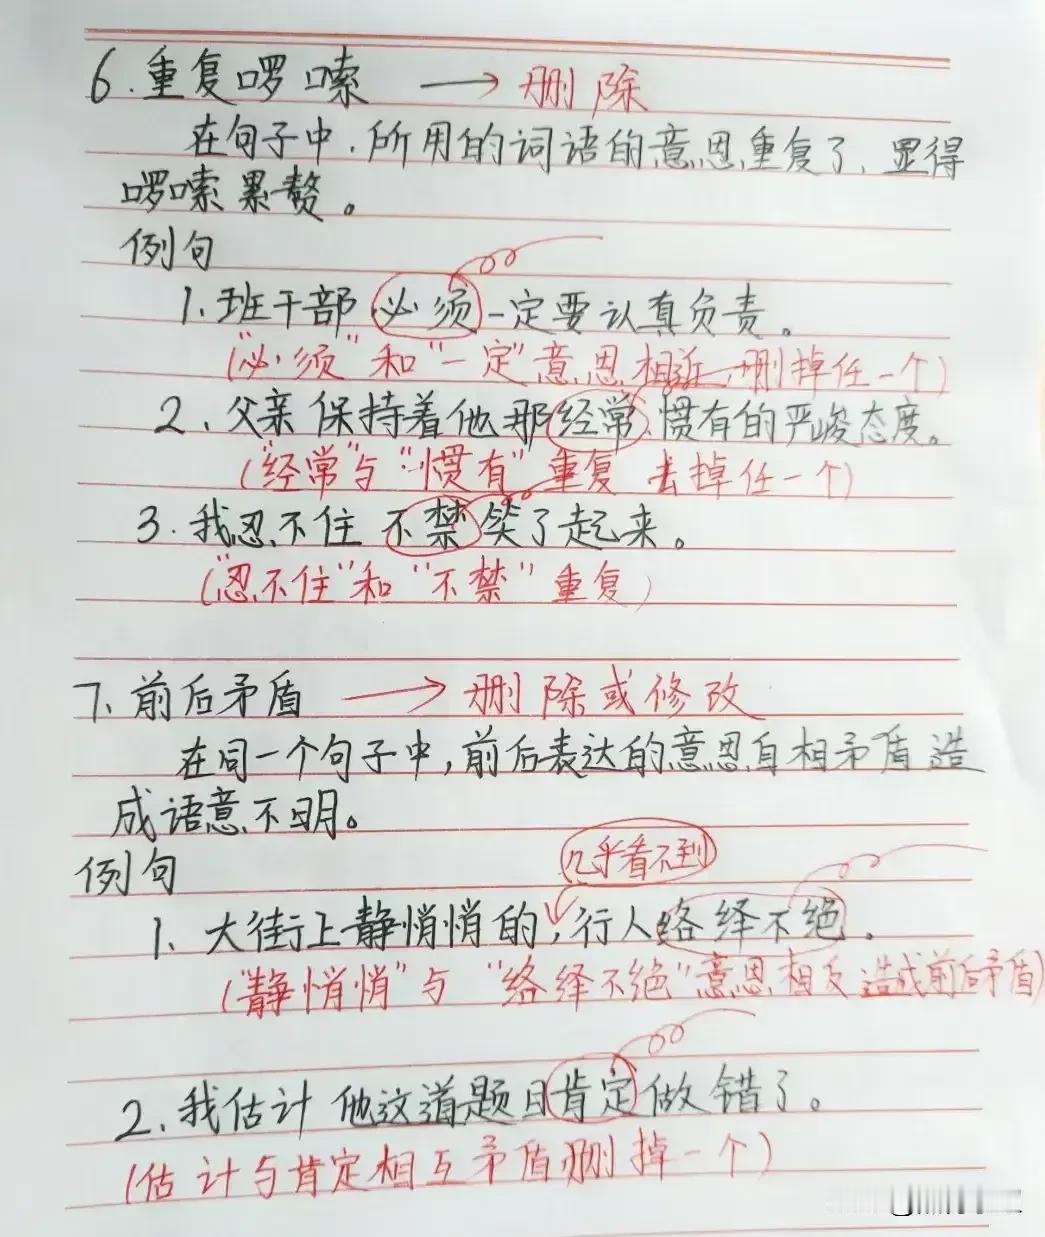 6.重复啰嗦 → 删除
在句子中,所用的词语的意思重复了,显得
啰嗦累赘。
例句
1.班干部必须一定要认真负责。
("必须"和"一定"意思相近,删掉任一个)
2、父亲保持着他那经常、惯有的严峻态度。
("经常"与"惯有"重复 去掉任一个)
3.我忍不住 不禁笑了起来。
("忍不住"和"不禁"重复)
7、前后矛盾 → 删除或修改
在同一个句子中,前后表达的意思自相矛盾造
成语意不明。
例句
几乎看不到
1、大街上静悄悄的,行人络绎不绝。
("静悄悄"与"络绎不绝"意思相反造成前后矛盾)
2、我估计他这道题目肯定做错了。
(估计与肯定相互矛盾删掉一个)